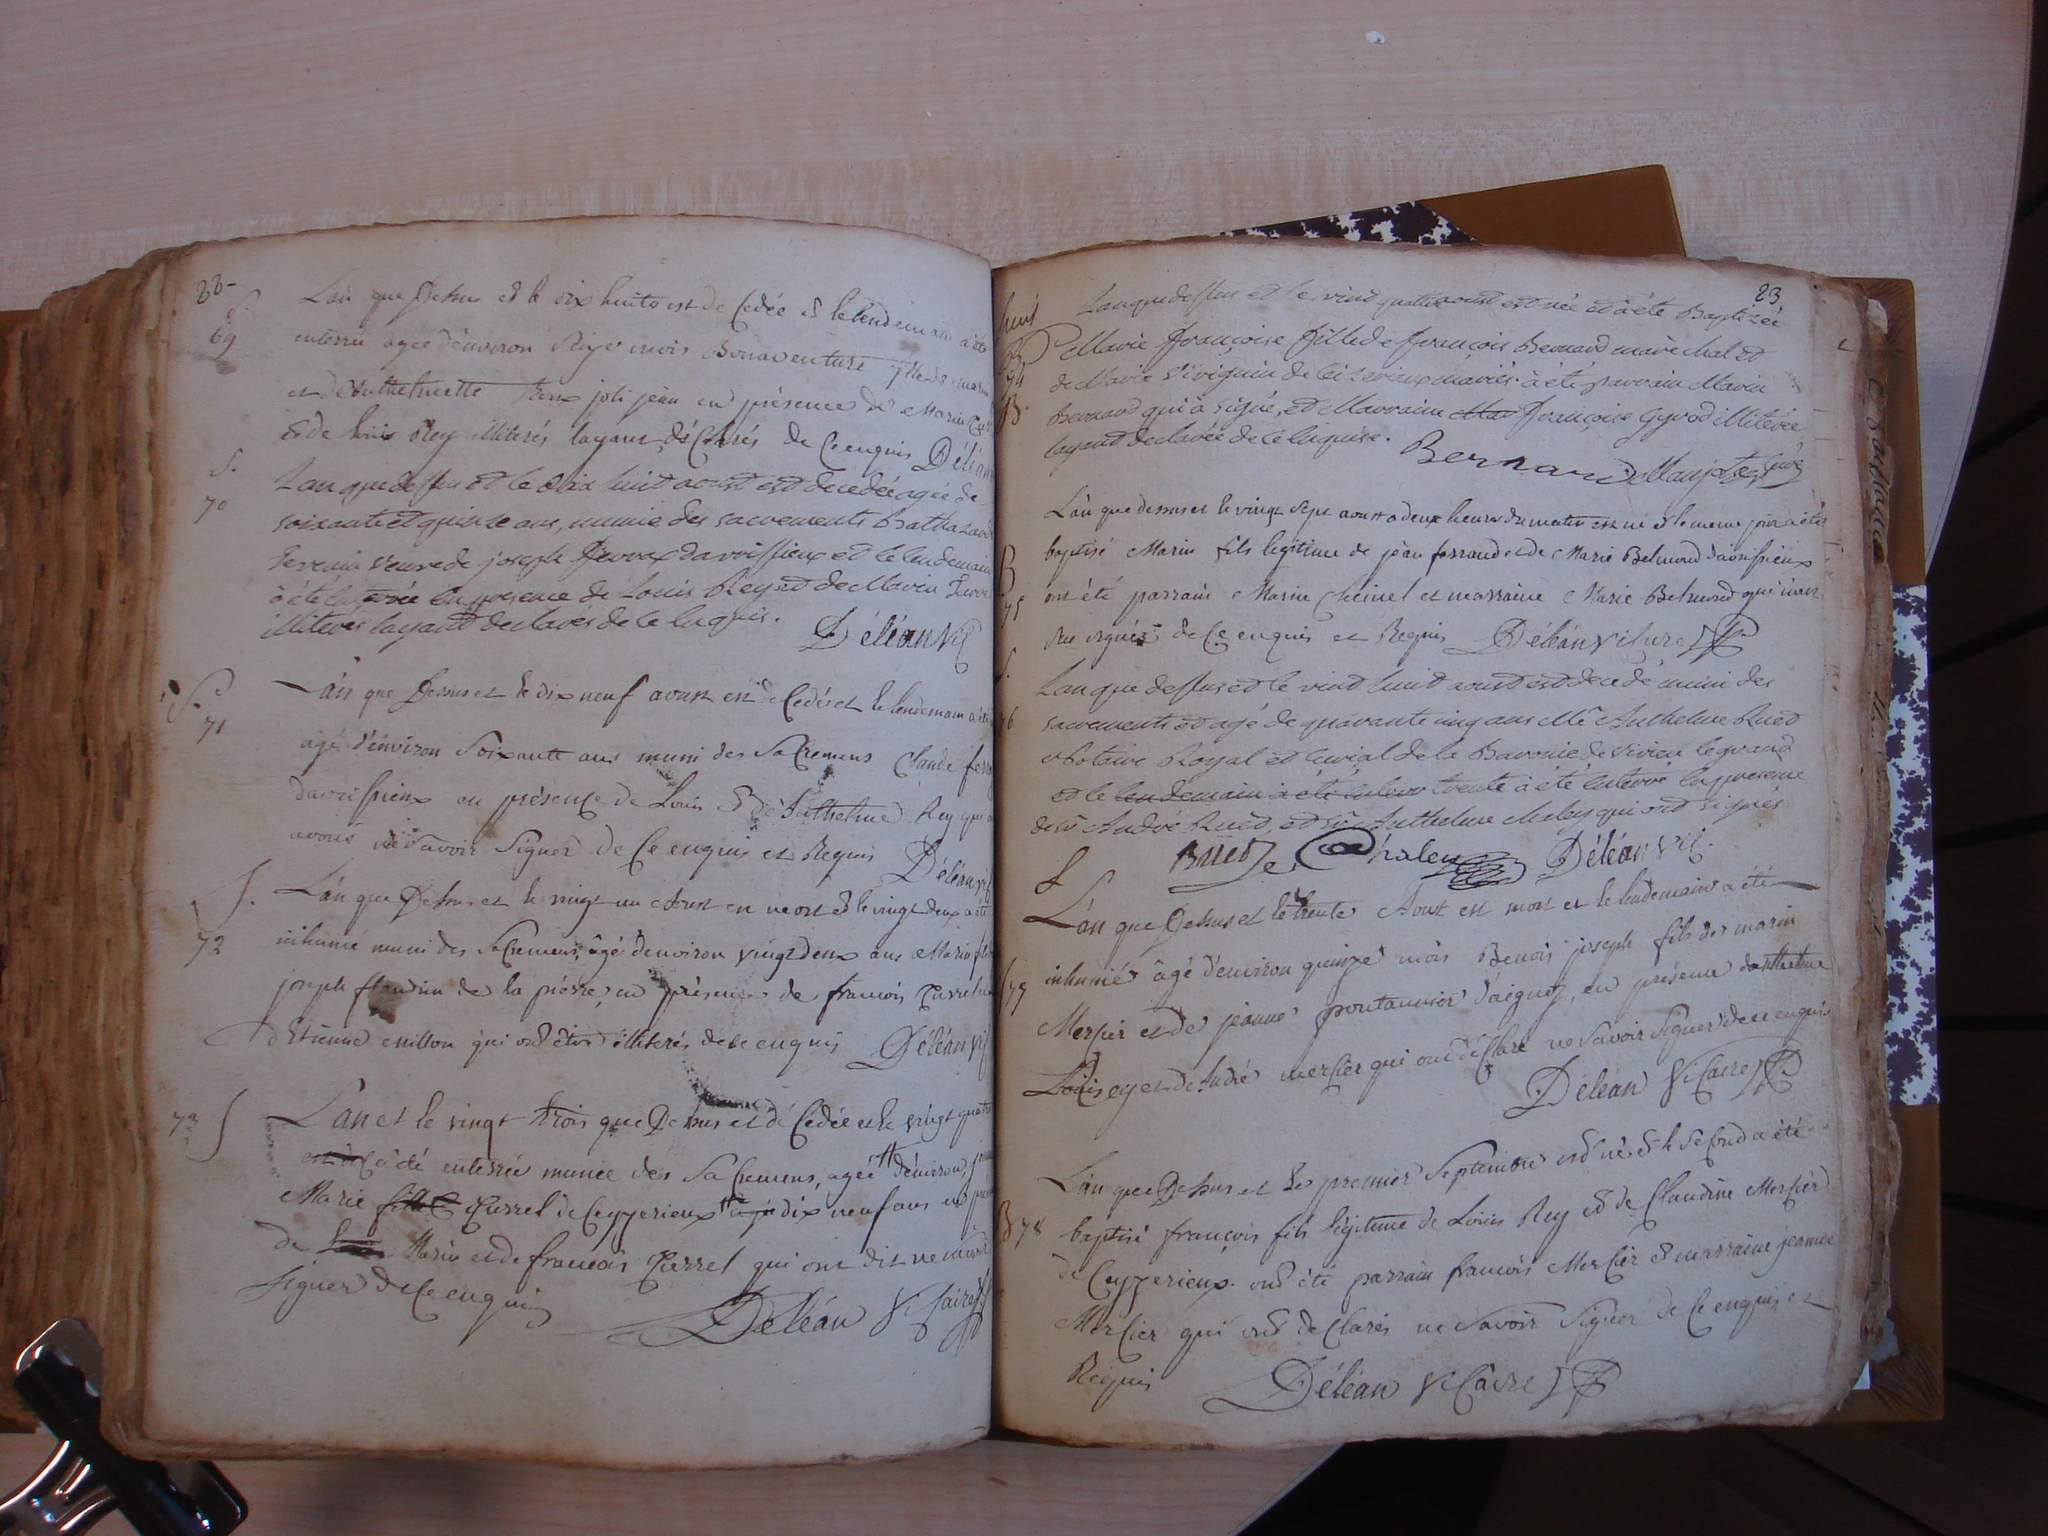 22
S.
69
L'an que Dessus et le dix huits est de Cedée et le lendemain a été
enterrée agée d'environ Seize mois Bonaventure fille de marin
et d'Anthelmette joli jean en présence de Marin
et de Louis Rey illiterés layant déClarés de Ce enquis Déléan
S.
70
Lan que dessus et le dix huit aoust est decedée agée de
soixante et quinze ans, munie des sacrements Balthazarde
veuve de joseph davoissieux et le lendemain
à été enterrée en presence de Louis Rey et de Marin
illiteres layant declarés de ce enquis.
Déléan Vic
S.
71
L'an que Dessus et le dix neuf aoust est de Cedé et le lendemain a été
agé d'environ Soixante ans muni des SaCremens Claude
davoissieux en présence de Louis et de Anthelme Rey qui
avoué ne savoir Signer de Ce enquis et Requis Déléan vic
S.
72
L'an que Dessus et le vingt un Aoust en mort et le vingt deux a été
inhumé muni des SaCremens, âgé d'environ vingt deux ans Marin fils
joseph flandrin de la pierre, en présence de francois Curret
d'Etienne millon qui ont été illiterés de ce enquis Déléan vic
73 S
L'an et le vingt trois que Dessus et dé Cedée et le vingt quatre
a été enterrée munie des SaCremens, agée d'environ
Marie Curret de Ceyzerieux dix neuf ans en
de Marin et de francois Curret qui ont dit ne
signer de Ce enquis
Déléan ViCaire
23
huit
B
74
B.
Lan que dessus et le vint quatre aoust est née et à été Baptisée
Marie françoise fille de françois Bernard maréchal et
de Marie Sévignin de Ceizerieux mariés. à été parrain Marin
Bernard qui à signé, et Marraine françoise Gyrod illiterée
layant declarée de ce enquise.
Bernard Manjot Curé
B
75
L'an que dessus et le vingt Sept aoust a deux heures du matin est né et le meme jour a été
baptisé Marin fils legitime de jean ferrand et de Marie Belmond d'avoissieux
ont été parrain Marin Cheinel et marraine Marie Belmond qui n'ont
Su signés de Ce enquis et Requis Déléan viCaire
S.
76
Lan que dessus et le vint huit aoust est decedé muni des
sacrements et agé de quarante cinq ans Me Anthelme Rued
Notaire Royal et Curial de la Baronie de Vivieu legrand
et le lendemain a été enterré trente a été enterré en presence
de sr André Rued, et sr Anthelme Chaley qui ont signés
Rued Chaley Déléan vic.
S
77
L'an que Dessus et le trente Aoust est mort et le lendemain a été
inhumé âgé d'environ quinze mois Benoit joseph fils de marin
Mercier et de jeanne pontannier d'aignoz, en présence danthelme
Louis ey et de André mercier qui ont déClaré ne savoir Signer de ce enquis
Déléan ViCaire
B 78
L'an que Dessus et le premier Septembre est né et le Second a été
baptisé françois fils légitime de Louis Rey et de Claudine Mercier
de Ceyzerieux. ont été parrain françois Mercier et marraine jeanne
Mercier qui ont déClarés ne Savoir Signer de Ce enquis et
Requis Déléan ViCaire